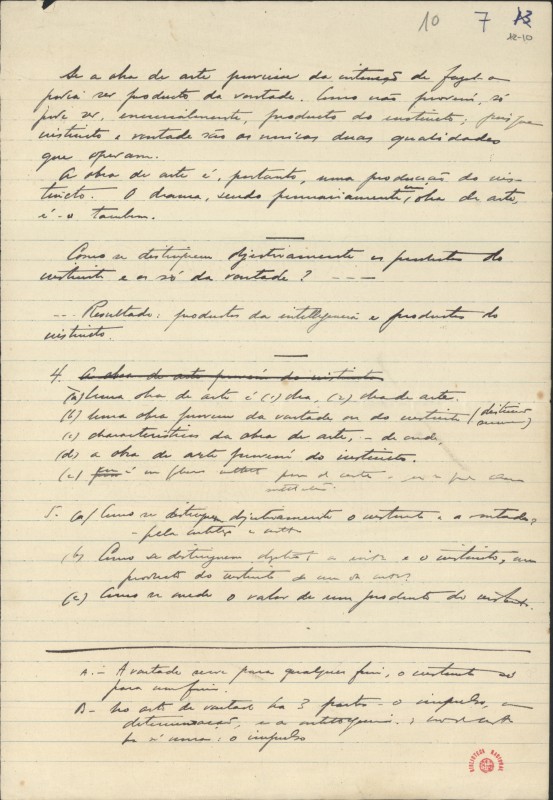 10 7 13
12-10
Se a obra de arte proviesse da intenção de fazel-a
podia ser producto da vontade. Como não provem, só
pode ser, essencialmente, producto do instincto; porque
instincto e vontade são as unicas duas qualidades
que operam.
A obra de arte é, portanto, uma producção do ins-
tincto. O drama, sendo primariamente uma obra de arte,
é-o tambem.
Como se distinguem objectivamente os productos do
instincto e os só da vontade? ---
-- Resultado: productos da intelligencia e productos do
instincto.
4. A obra de arte provém do instincto
(a) Uma obra de arte é (1) obra, (2) obra de arte.
(b) Uma obra provem da vontade ou do instincto
(c) characteristicos da obra de arte, - de onde,
(d) a obra de arte provém do instincto.
(e) é um
5. (a) Como se distinguem objectivamente o instincto e a vontade?
- pela
(b) Como se distinguem e o instincto,
producto do instincto
(c) Como se mede o valor de um producto do instincto.
A. - A vontade serve para qualquer fim, o instincto só
para um fim.
B - No acto de vontade ha 3 partes - o impulso, a
determinação, e a
o impulso
BIBLIOTECA NACIONAL